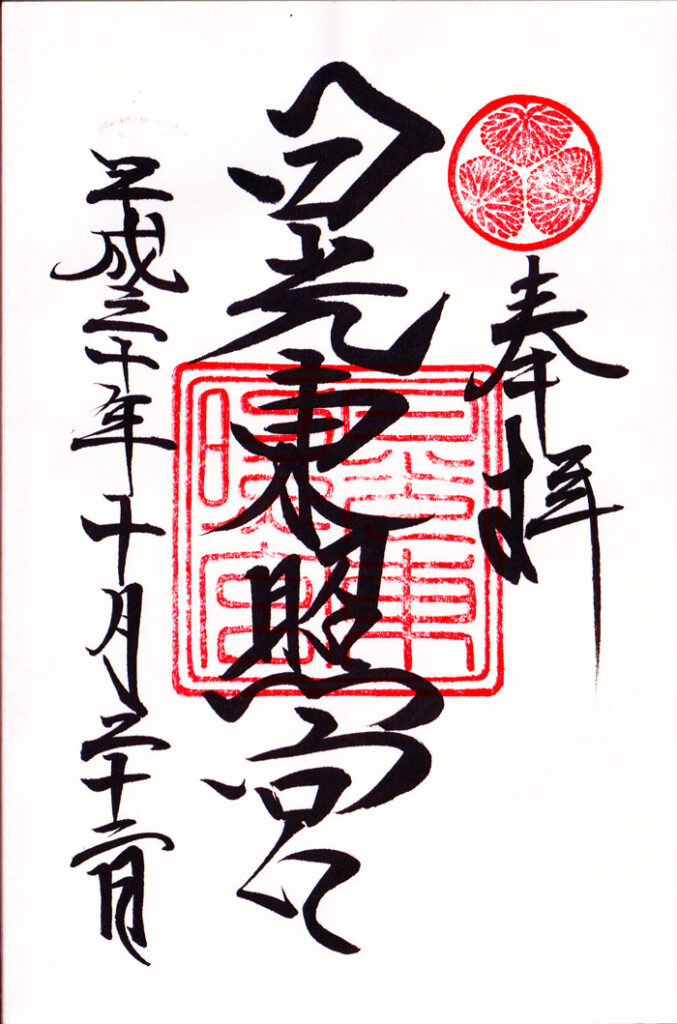 奉拝
日光東照宮
平成三十年十月二十二日
日光東
照宮